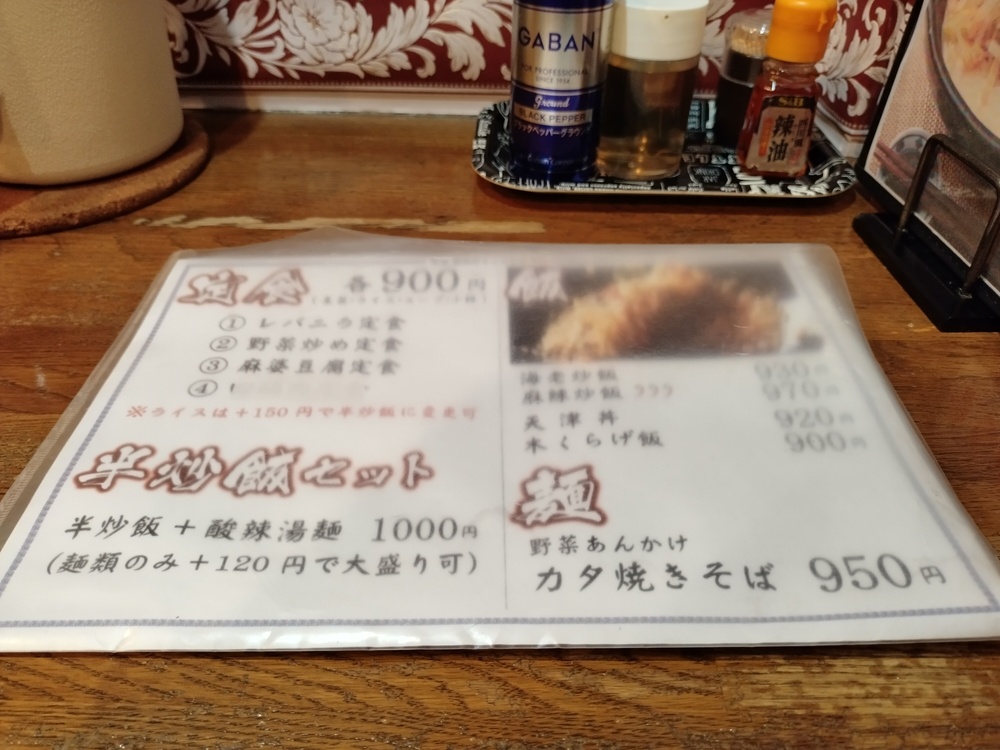 GABAN
FOR PROFESSIONAL
SINCE 1954
Ground
BLACK PEPPER
ブラックペッパーグラウンド
S&B
辣油
定食 各900円
① レバニラ定食
② 野菜炒め定食
③ 麻婆豆腐定食
④
※ライスは+150円で半炒飯に変更可
半炒飯セット
半炒飯+酸辣湯麺 1000円
(麺類のみ+120円で大盛り可)
飯
海老炒飯 930円
麻辣炒飯 970円
天津丼 920円
木くらげ飯 900円
麺
野菜あんかけ
カタ焼きそば 950円